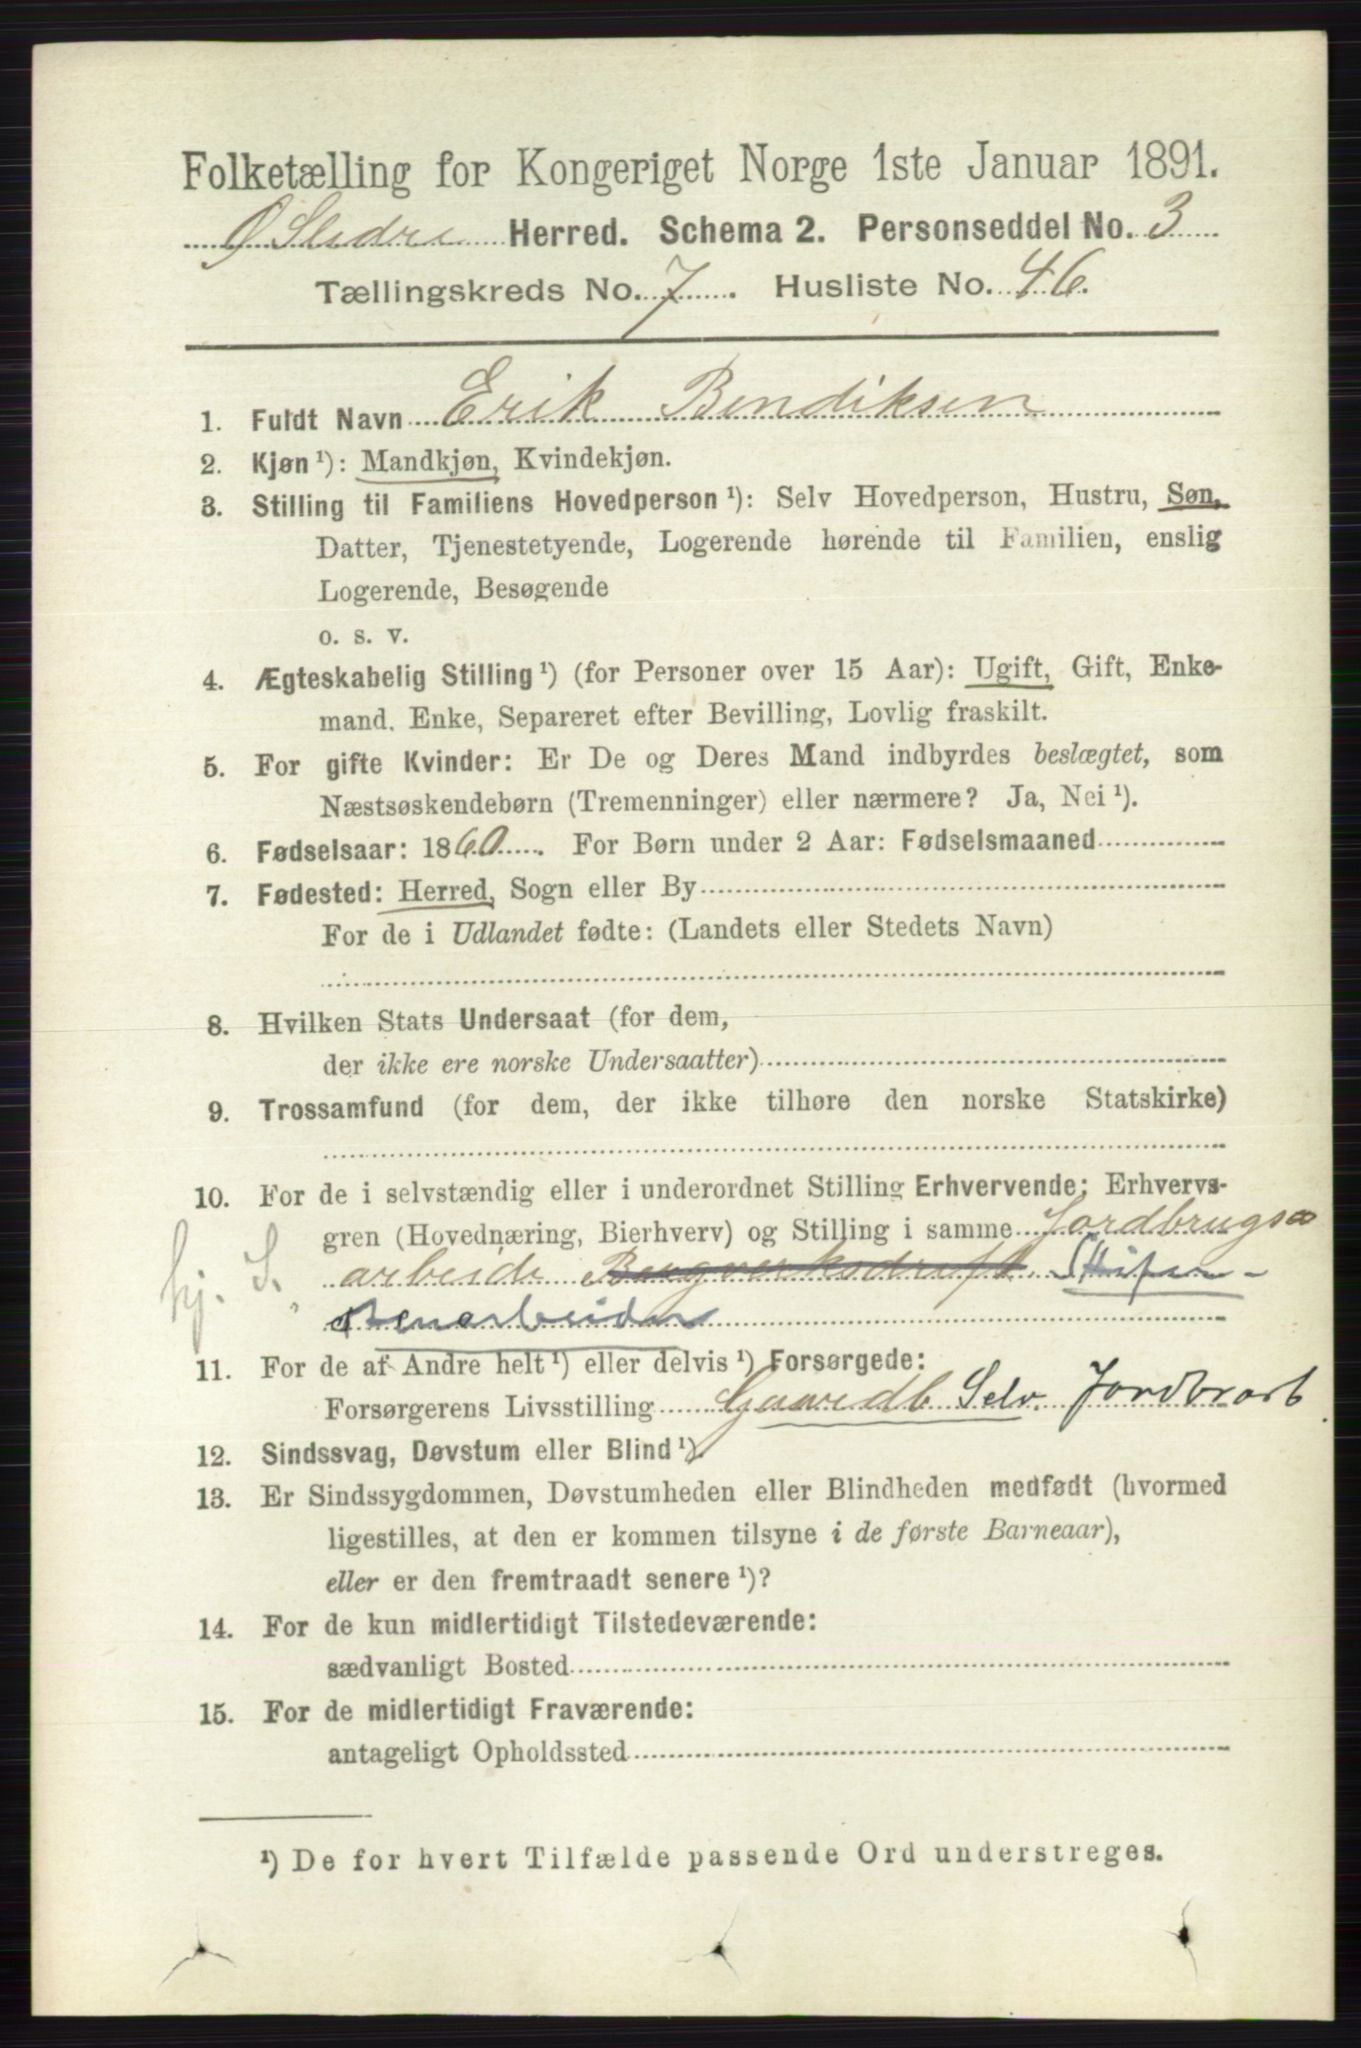 Folketælling for Kongeriget Norge 1ste Januar 1891.
Ø Slidre Herred. Schema 2. Personseddel No. 3
Tællingskreds No. 7. Husliste No. 46.
1. Fuldt Navn Erik Bendiksen
2. Kjøn ¹): Mandkjøn, Kvindekjøn.
3. Stilling til Familiens Hovedperson ¹): Selv Hovedperson, Hustru, Søn,
Datter, Tjenestetyende, Logerende hørende til Familien, enslig
Logerende, Besøgende
o. s. v.
4. Ægteskabelig Stilling ¹) (for Personer over 15 Aar): Ugift, Gift, Enke-
mand. Enke, Separeret efter Bevilling, Lovlig fraskilt.
5. For gifte Kvinder: Er De og Deres Mand indbyrdes beslægtet, som
Næstsøskendebørn (Tremenninger) eller nærmere? Ja, Nei ¹).
6. Fødselsaar: 1860. For Børn under 2 Aar: Fødselsmaaned
7. Fødested: Herred, Sogn eller By
For de i Udlandet fødte: (Landets eller Stedets Navn)
8. Hvilken Stats Undersaat (for dem,
der ikke ere norske Undersaatter)
9. Trossamfund (for dem, der ikke tilhøre den norske Statskirke)
10. For de i selvstændig eller i underordnet Stilling Erhvervende: Erhvervs-
gren (Hovednæring, Bierhverv) og Stilling i samme Jordbrugs
hj. S. arbeide Bergverksdrift. Skifer-
stenarbeider
11. For de af Andre helt ¹) eller delvis ¹) Forsørgede:
Forsørgerens Livsstilling Gaardb Selv. Jordbrarb
12. Sindssvag, Døvstum eller Blind ¹).
13. Er Sindssygdommen, Døvstumheden eller Blindheden medfødt (hvormed
ligestilles, at den er kommen tilsyne i de første Barneaar),
eller er den fremtraadt senere ¹)?
14. For de kun midlertidigt Tilstedeværende:
sædvanligt Bosted
15. For de midlertidigt Fraværende:
antageligt Opholdssted
¹) De for hvert Tilfælde passende Ord understreges.